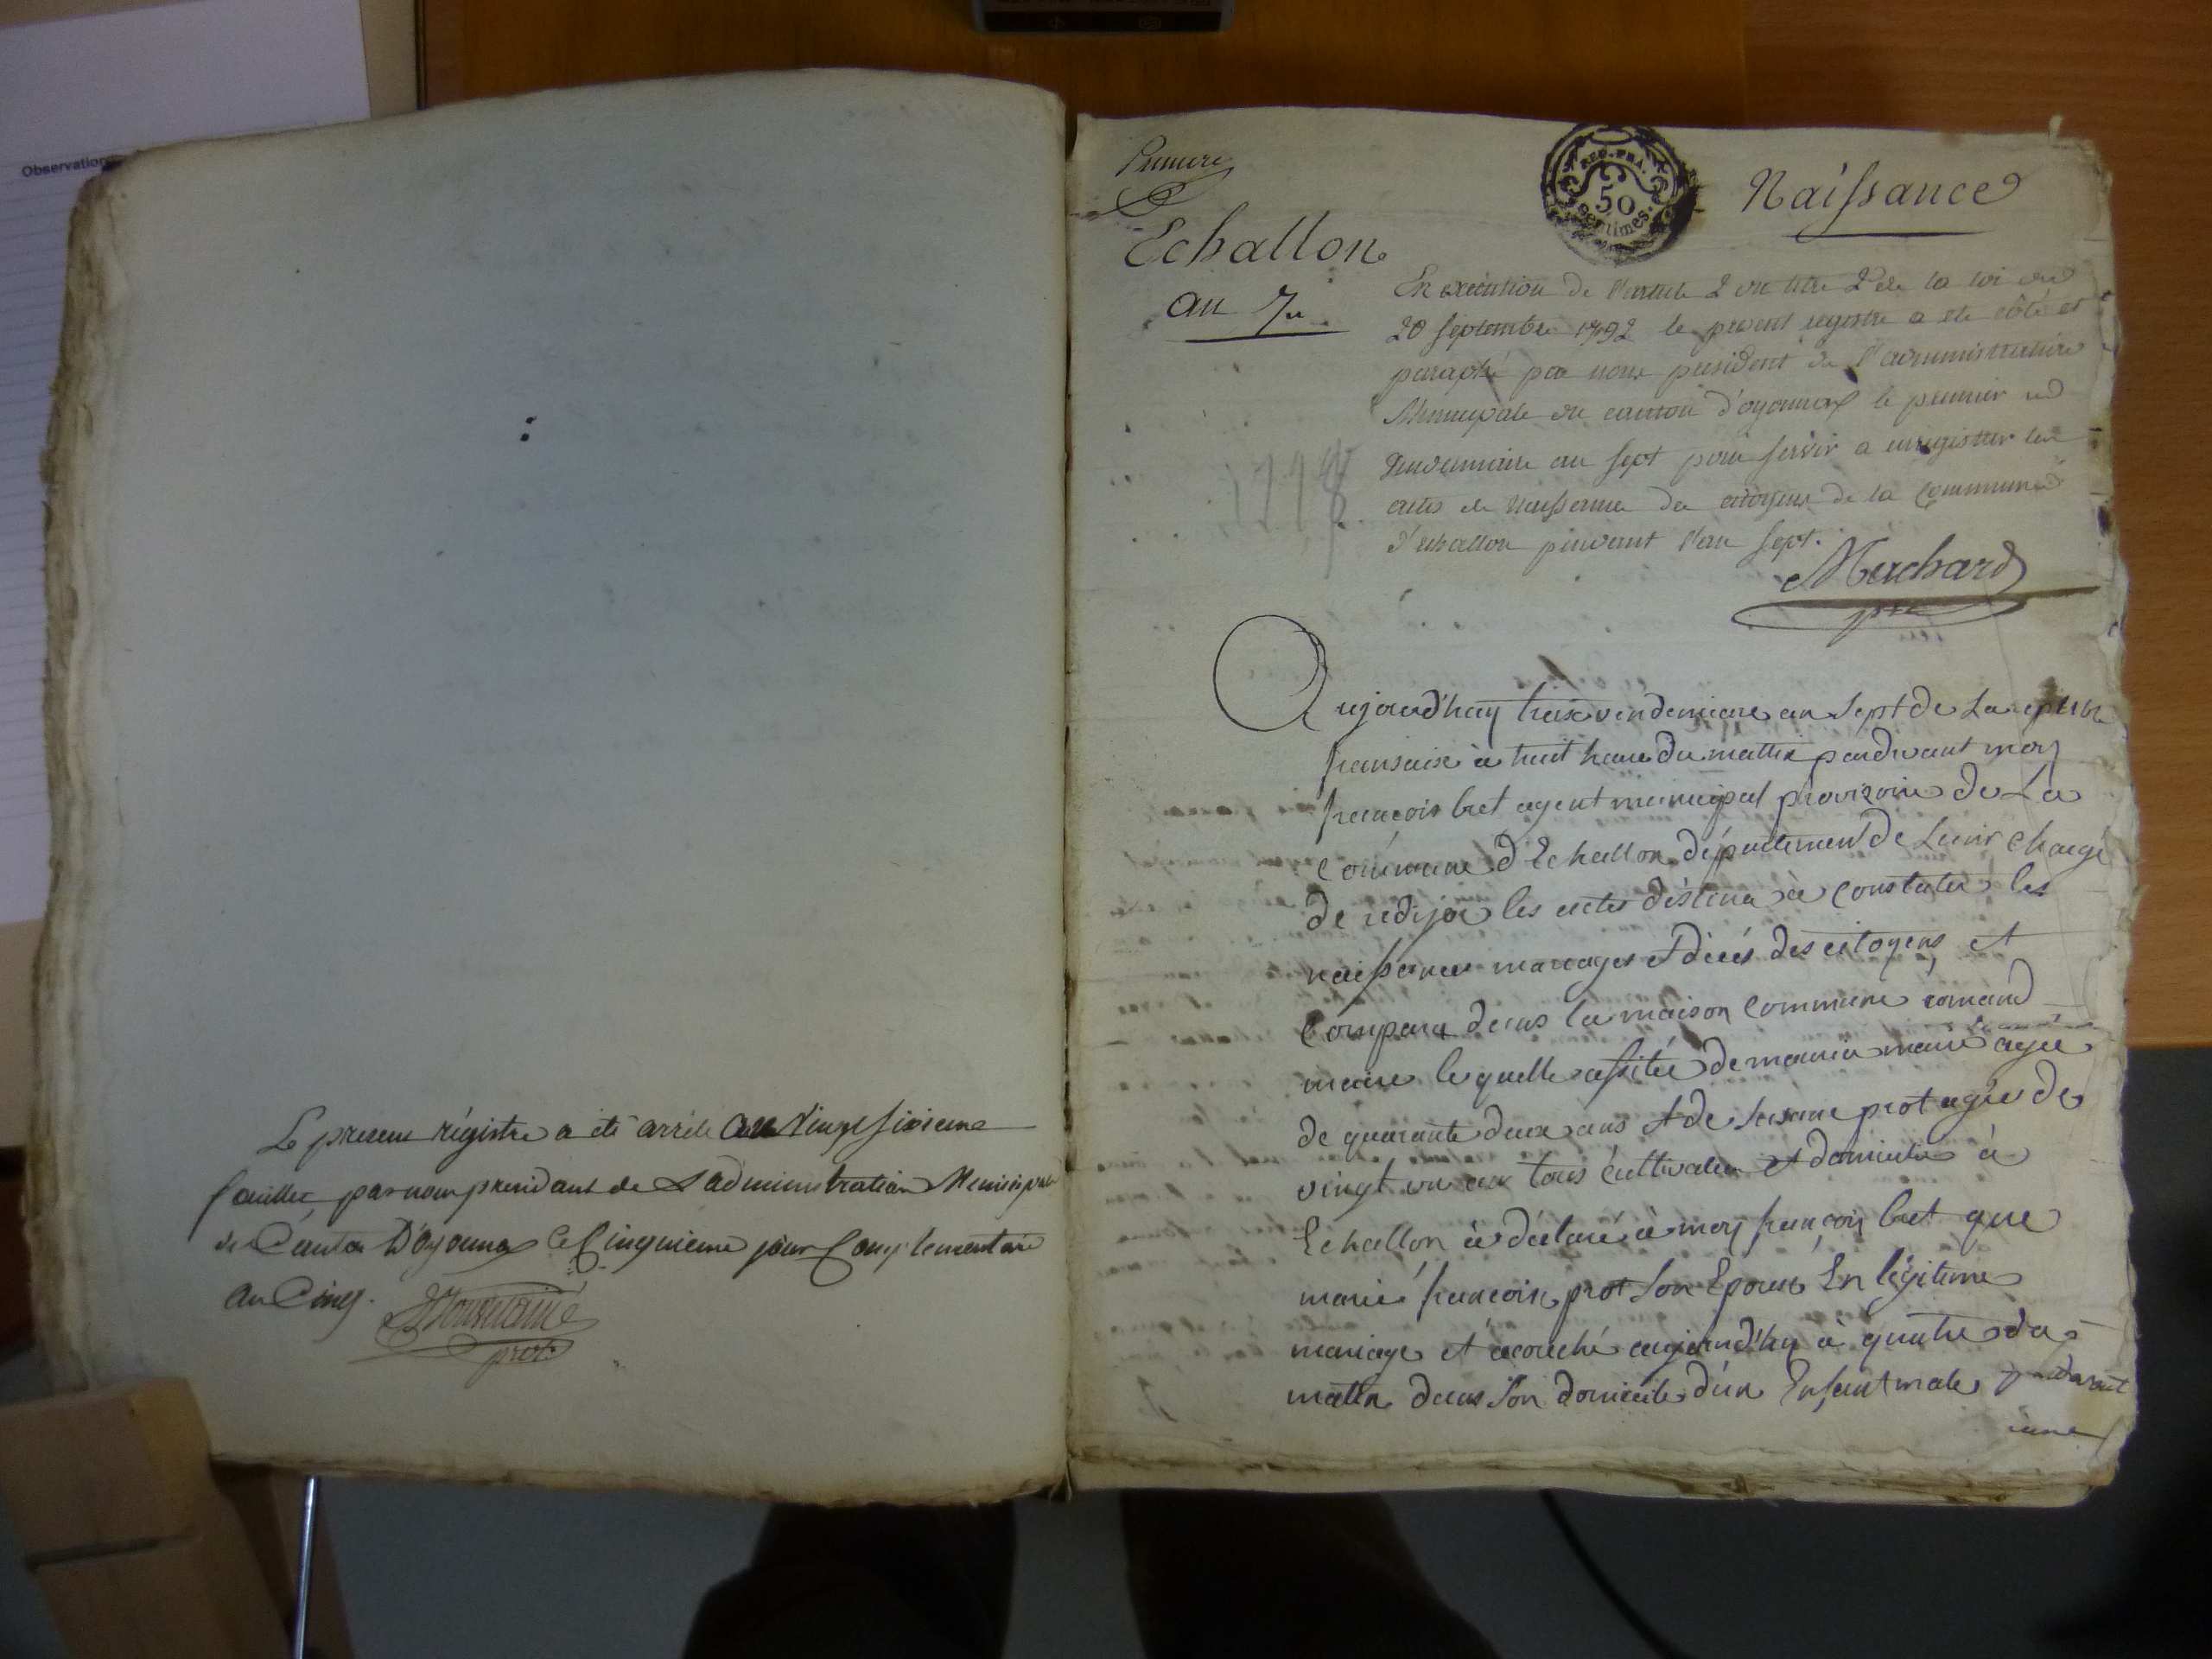 Observation
Le present régistre a été arrété au Vingt sixieme
feuillet, par nous president de L'administration Municipale
du Canton D'oyonnax ce Cinquieme jour Complementaire
an Cinq.
prest
Premier
Echallon
an 7e
REP. FRA.
50
centimes.
Naissance
En execution de l'article 2 du titre 2 de la loi du
20 septembre 1792 le present registre a été côté et
paraphé par nous president de l'administration
Municipale du canton d'oyonnax le premier
Vendemiaire an sept pour servir a enregistrer les
actes de Naissance des citoyens de la Commune
d'echallon pendant l'an sept.
1798
Marchard
Aujourd'huy treize vendemiaire an sept de La republ
fransaise à huit heure du mattin pardevant moy
francois bret agent municipal provizoire de La
Commune d'Echallon département de Lain chargé
de redijer les actes déstiné à constater les
naissances mariages et décés des citoyens, et
Comparu dans la maison Commune romand
maire lequelle assitée de maurice maire agée
de quarante deux ans et de susane prot agée de
vingt un an tous cultivateur et domicilié à
Echallon à déclaré à moy francois bret que
marie francoise prot son Epouse En légitime
mariage et acouché aujourd'huy à quatre du
matin dans son domicile d'un Enfant male